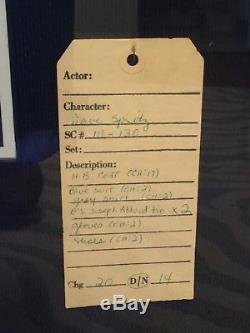 Actor:
Character:
Dave Spritz
SC# 111-130
Set:
Description:
H.B. COAT (CH:17)
Blue suit (CH:2)
gray shirt (CH:2)
B's Joseph Abboud tie x 2
gloves (CH:2)
shoes (CH:2)
Chg 20 D/N 14